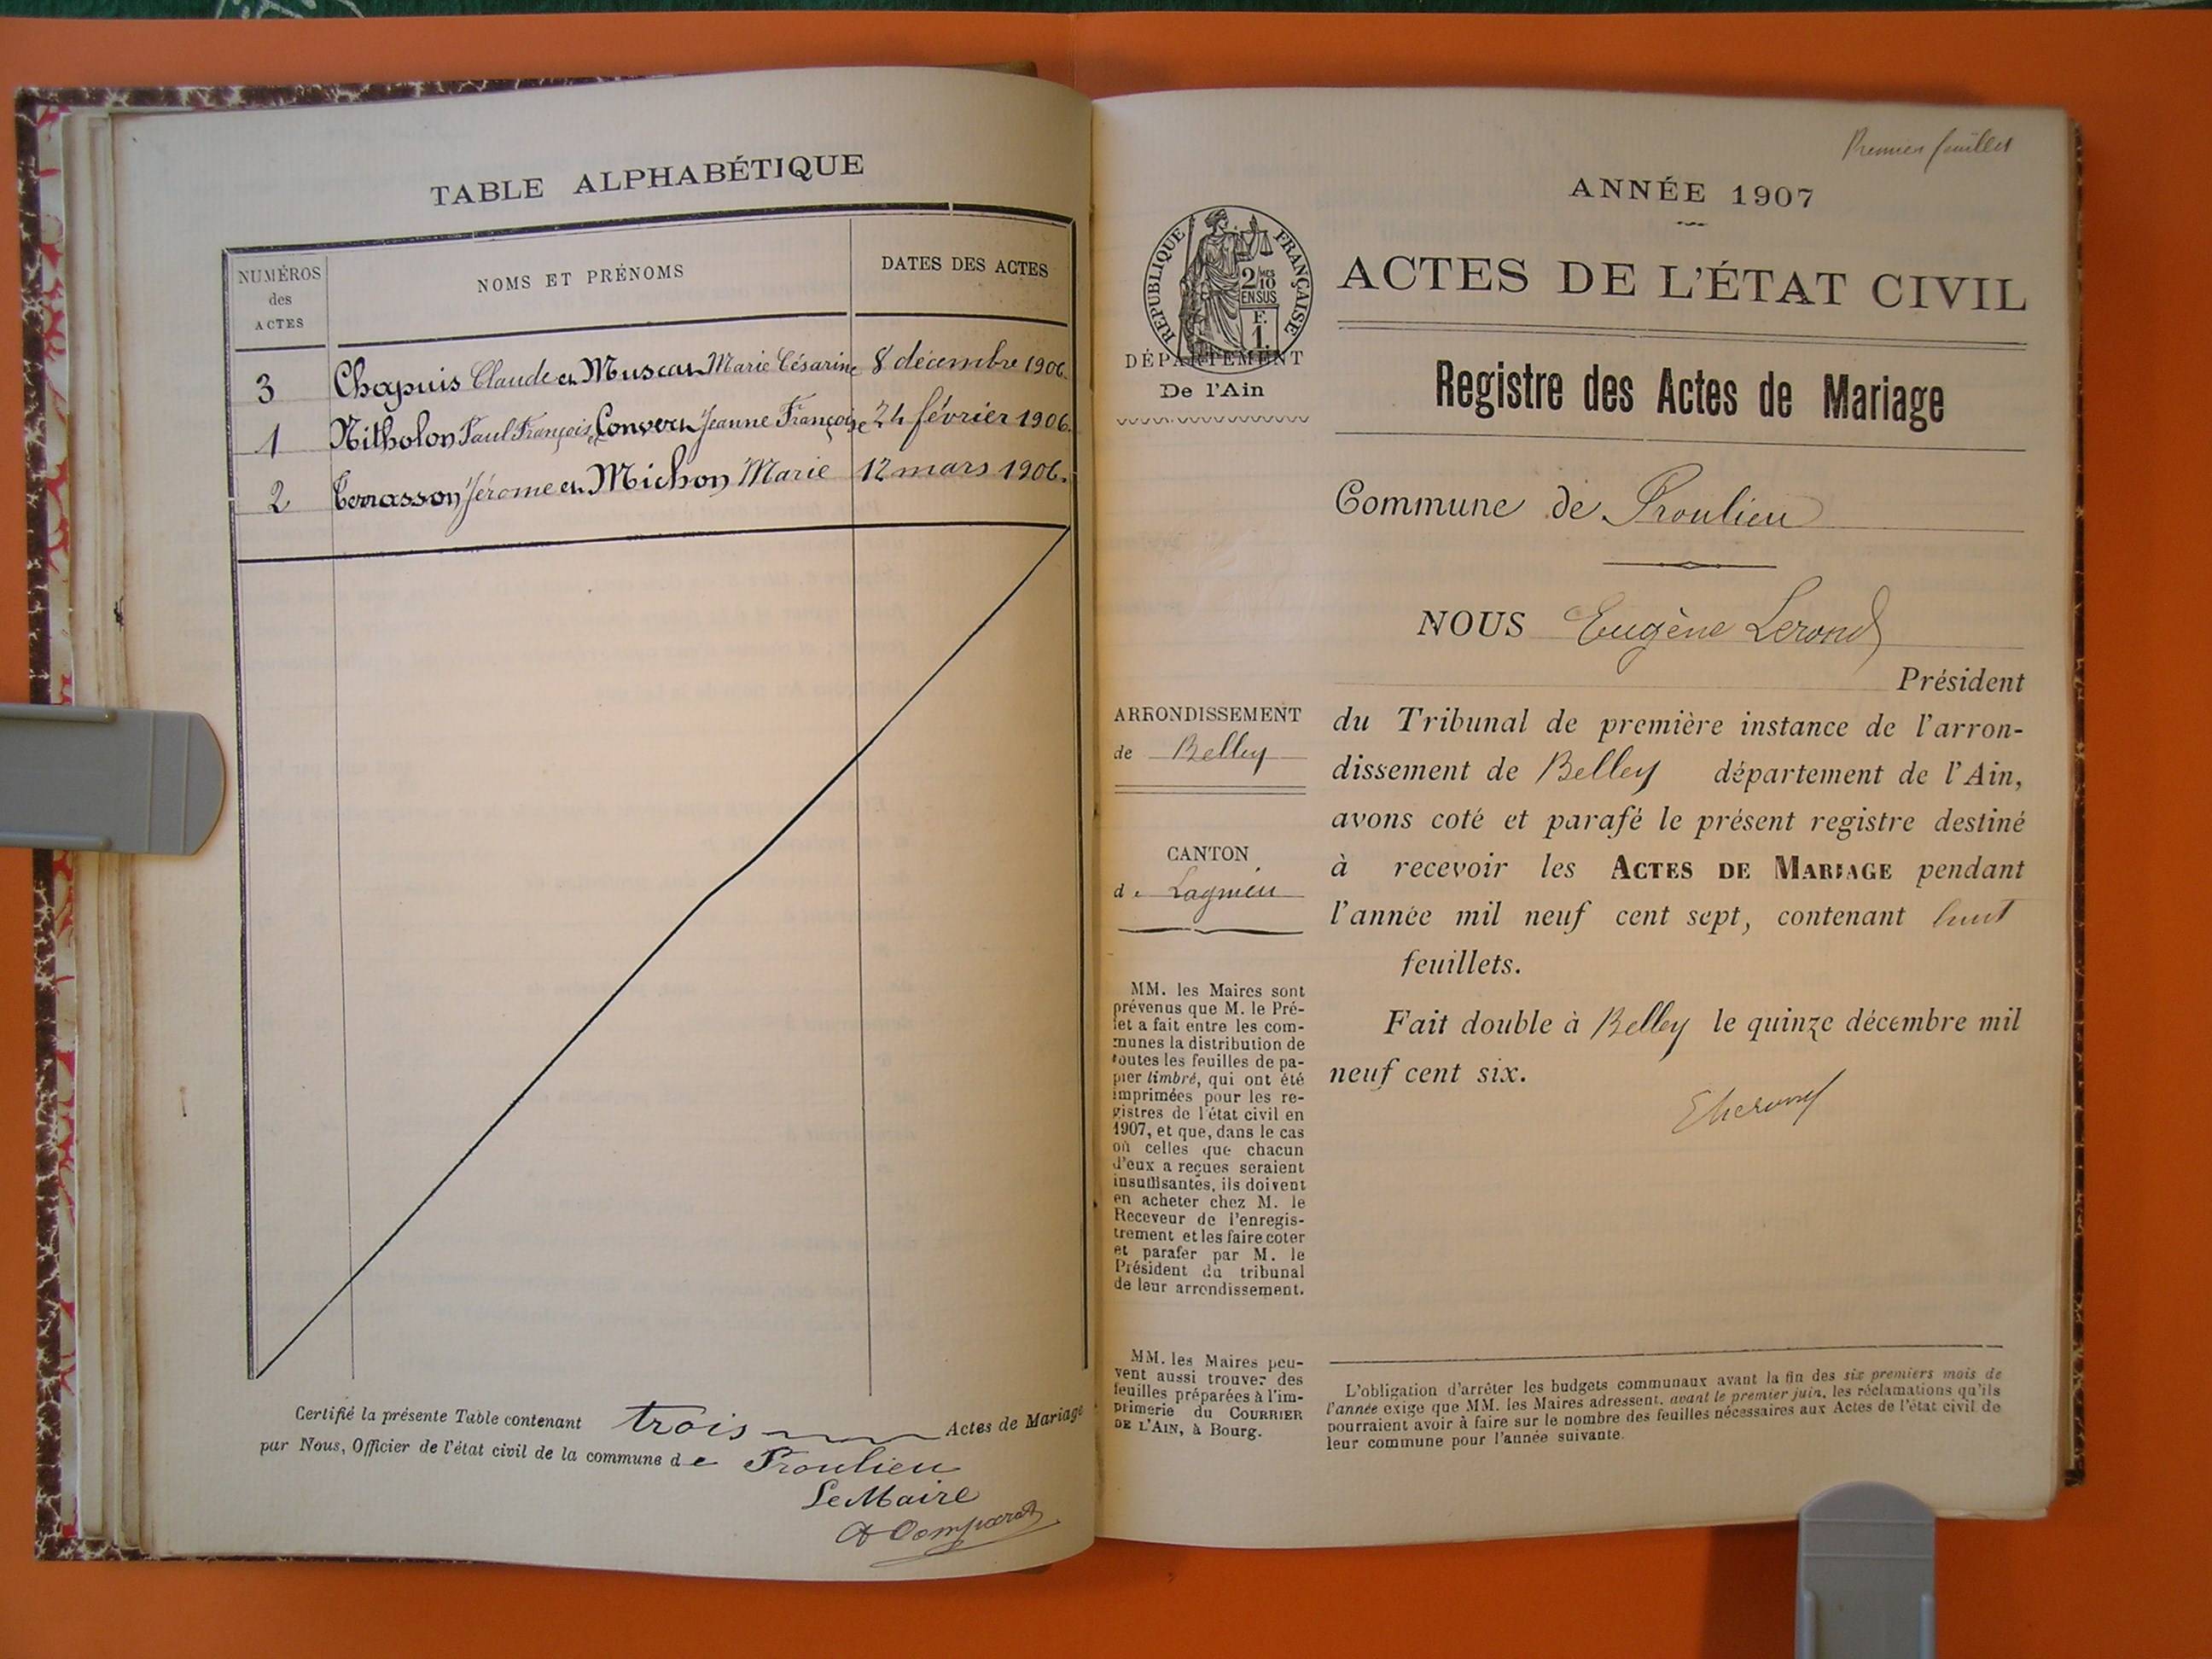 TABLE ALPHABÉTIQUE
NUMÉROS
des
ACTES
NOMS ET PRÉNOMS
DATES DES ACTES
3 Chapuis Claude et Muscat Marie Césarine 8 décembre 1906.
1 Nitholon Paul François et Convert Jeanne Françoise 24 février 1906.
2 Terrasson Jérome et Michon Marie 12 mars 1906.
Certifié la présente Table contenant trois Actes de Mariage
par Nous, Officier de l'état civil de la commune de Proulieu
Le Maire
Premier feuillet
ANNÉE 1907
RÉPUBLIQUE FRANÇAISE
2/10
EN SUS
F.
1.
DÉPARTEMENT
De l'Ain
ARRONDISSEMENT
de Belley
CANTON
de Lagnieu
MM. les Maires sont
prévenus que M. le Pré-
fet a fait entre les com-
munes la distribution de
toutes les feuilles de pa-
pier timbré, qui ont été
imprimées pour les re-
gistres de l'état civil en
1907, et que, dans le cas
où celles que chacun
d'eux a reçues seraient
insuffisantes, ils doivent
en acheter chez M. le
Receveur de l'enregis-
trement et les faire coter
et parafer par M. le
Président du tribunal
de leur arrondissement.
MM. les Maires peu-
vent aussi trouver des
feuilles préparées à l'im-
primerie du COURRIER
DE L'AIN, à Bourg.
ACTES DE L'ÉTAT CIVIL
Registre des Actes de Mariage
Commune de Proulieu
NOUS Eugène Lerond
Président
du Tribunal de première instance de l'arron-
dissement de Belley département de l'Ain,
avons coté et parafé le présent registre destiné
à recevoir les ACTES DE MARIAGE pendant
l'année mil neuf cent sept, contenant huit
feuillets.
Fait double à Belley le quinze décembre mil
neuf cent six.
L'obligation d'arrêter les budgets communaux avant la fin des six premiers mois de
l'année exige que MM. les Maires adressent, avant le premier juin, les réclamations qu'ils
pourraient avoir à faire sur le nombre des feuilles nécessaires aux Actes de l'état civil de
leur commune pour l'année suivante.